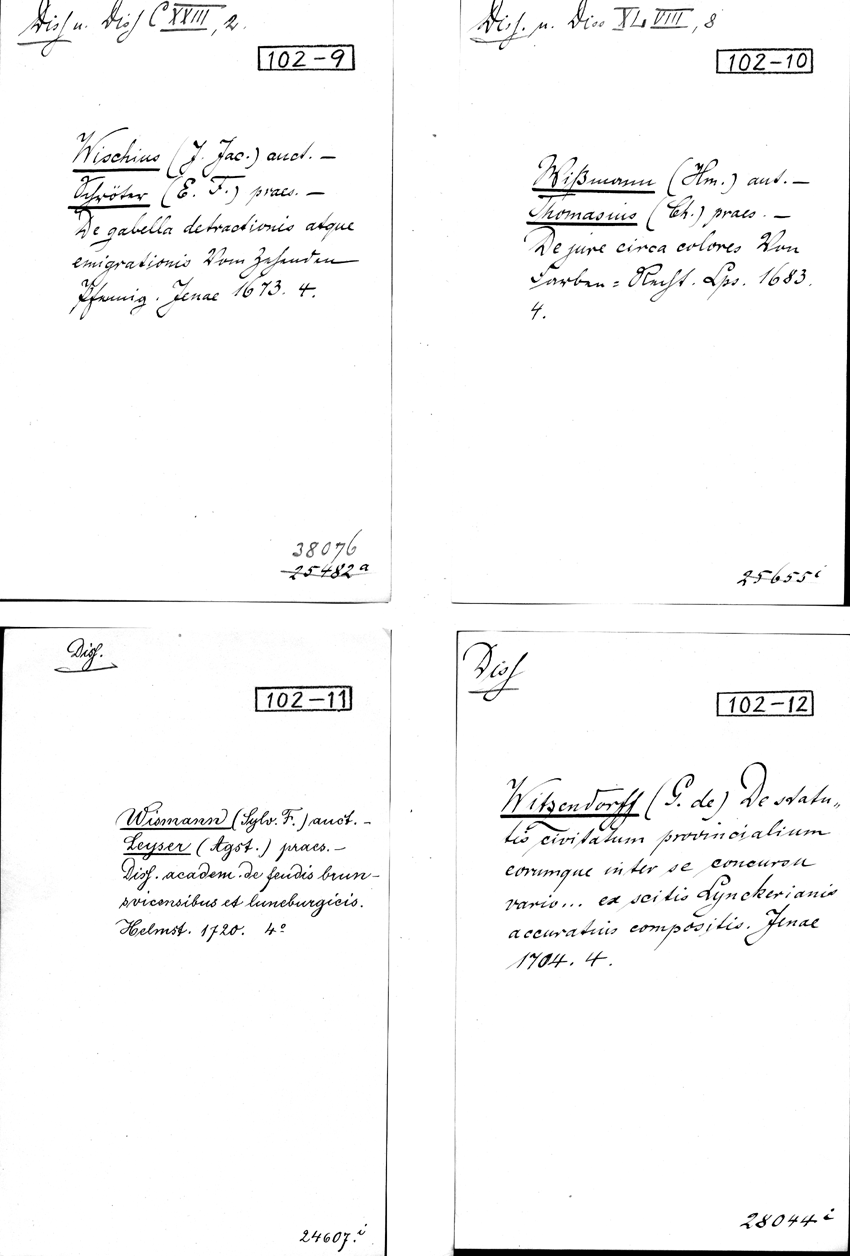 Diss u. Diss CXXIII, 2.
102-9
Wischius (J. Jac.) auct. —
Schröter (E. F.) praes. —
De gabella detractionis atque
emigrationis Vom Zehenden
Pfennig. Jenae 1673. 4.
38076
25482a
Diss. u. Diss XLVIII, 8
102-10
Wißmann (Hm.) aut. —
Thomasius (Ch.) praes. —
De jure circa colores Von
Farben= Recht. Lps. 1683.
4.
25655i
Diss.
102-11
Wismann (Sylv. F.) auct. —
Leyser (Agst.) praes. —
Diss. academ. de feudis brun-
svicensibus et luneburgicis.
Helmst. 1720. 4°
24607.i
Diss
102-12
Witzendorff (G. de) De statu„
tis civitatum provincialium
eorumque inter se concursu
vario... ex scitis Lynckerianis
accuratius compositis. Jenae
1704. 4.
28044i